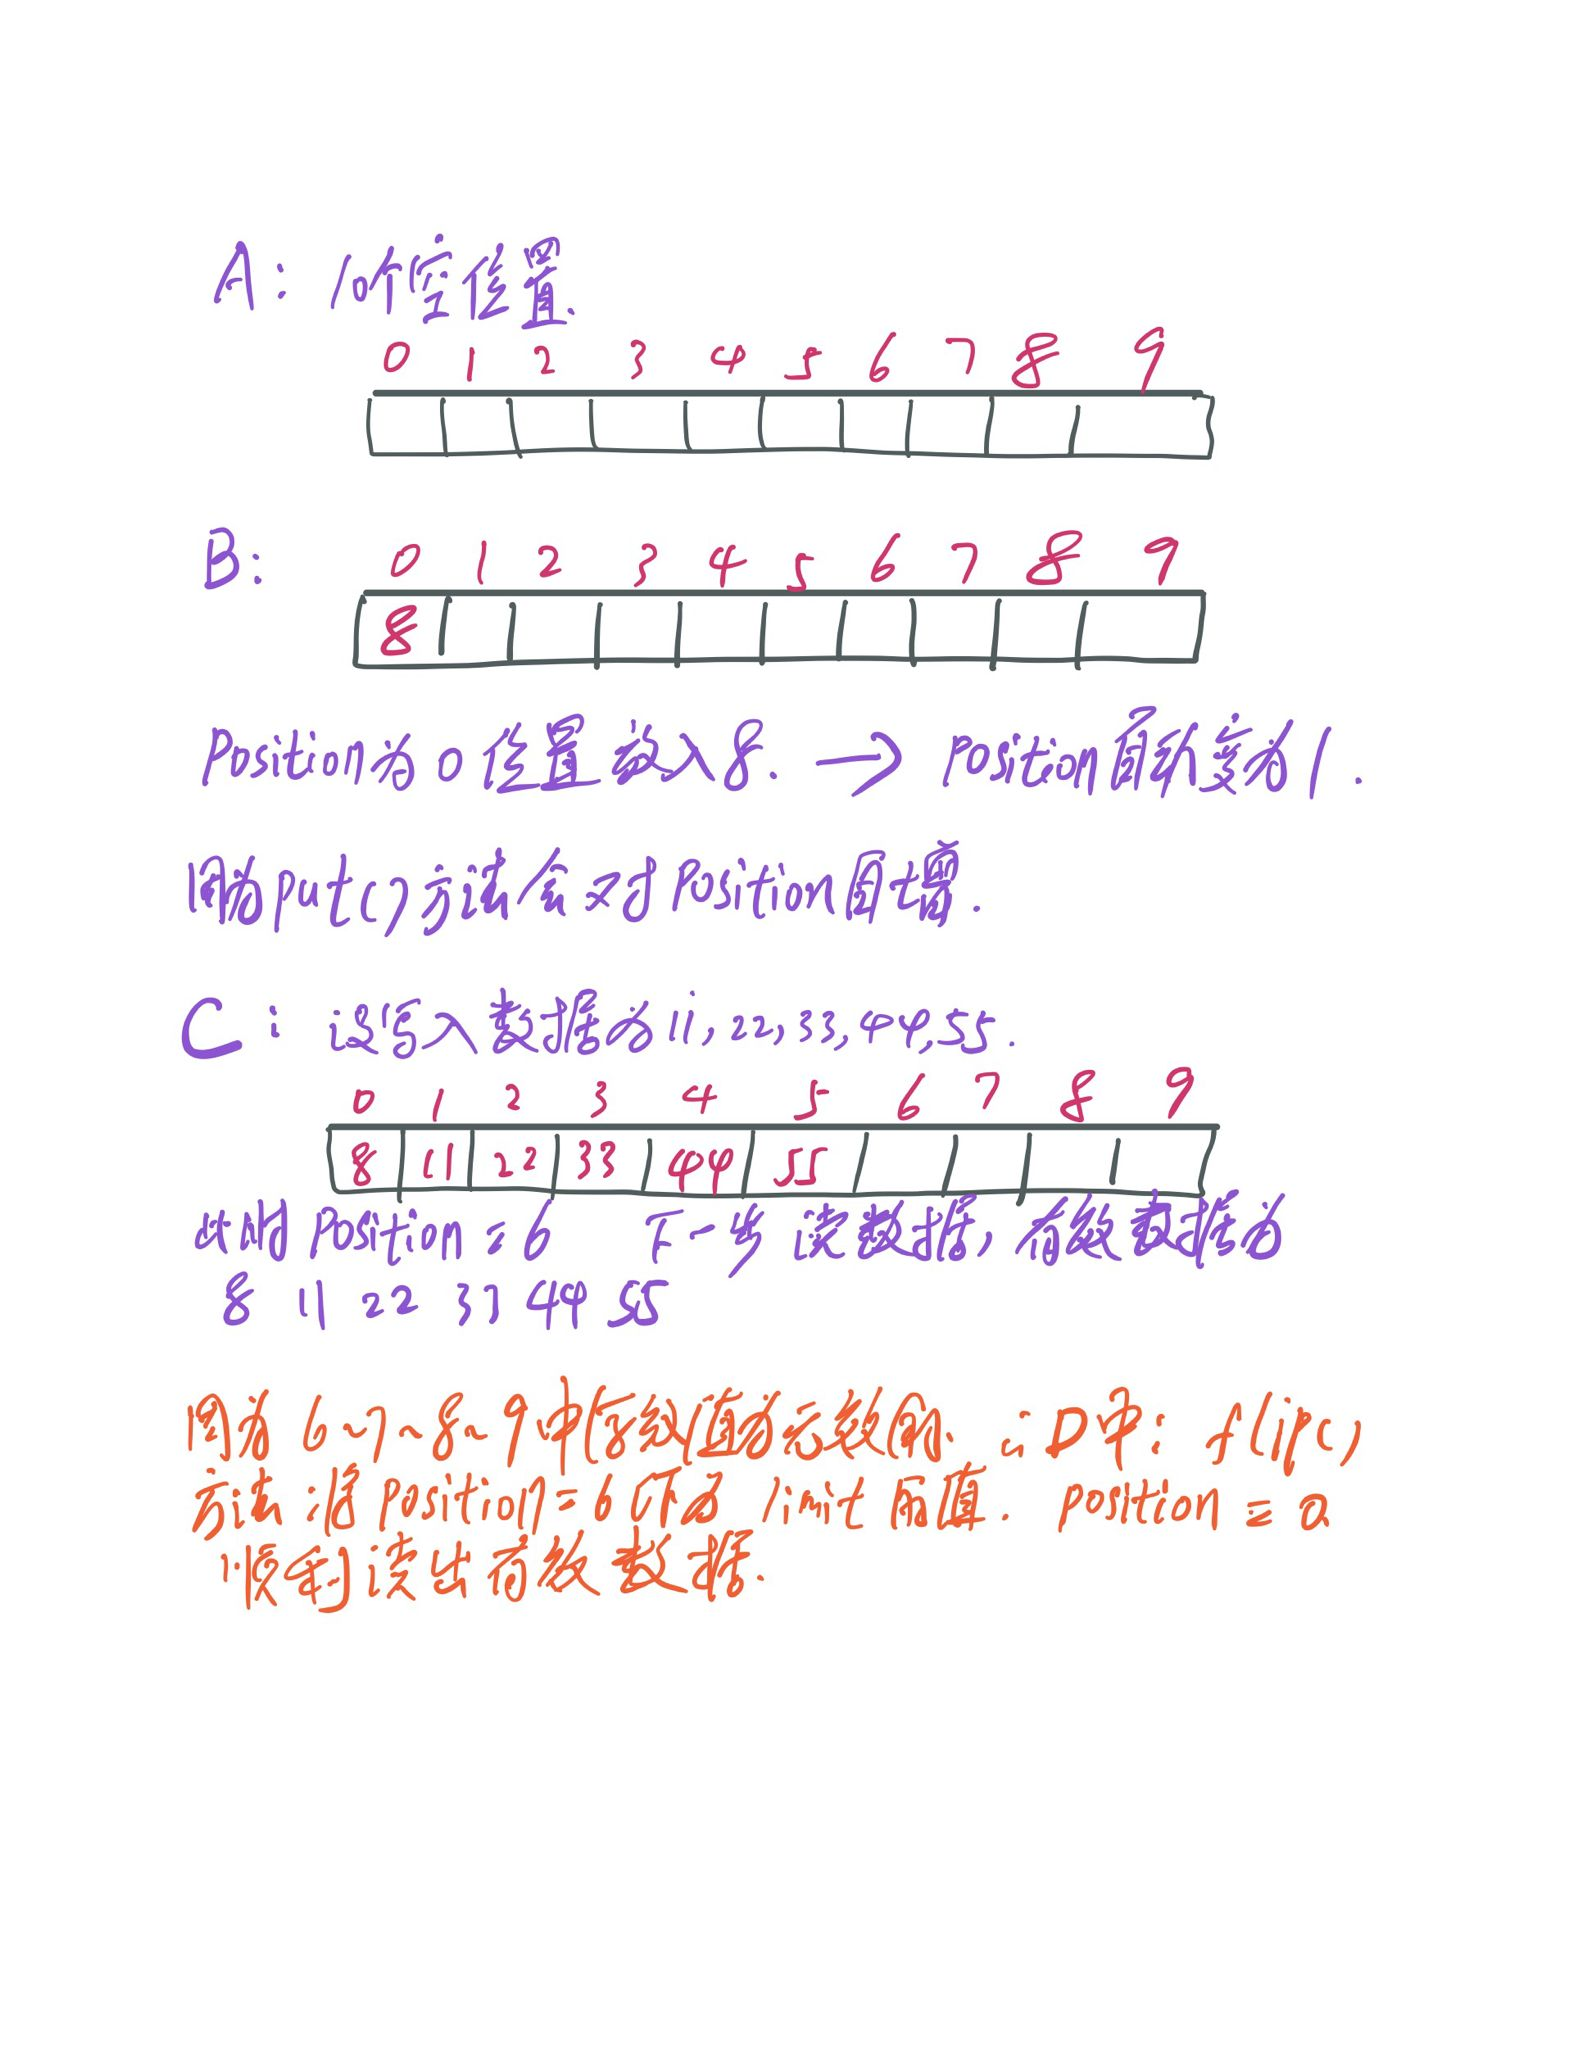 A: 10个空位置.
0 1 2 3 4 5 6 7 8 9
B:
0 1 2 3 4 5 6 7 8 9
8
Position为0位置放入8. → Position自动变为1.
因为put()方法会对Position自增.
C: 设写入数据为11,22,33,44,55.
0 1 2 3 4 5 6 7 8 9
8 11 22 33 44 55
此时Position=6 下一步读数据,有效数据为
8 11 22 33 44 55
因为6~7~8~9中存数值为无效的. ∴D中: flip()
方法将position=6作为limit的值. position=0
顺利读出有效数据.